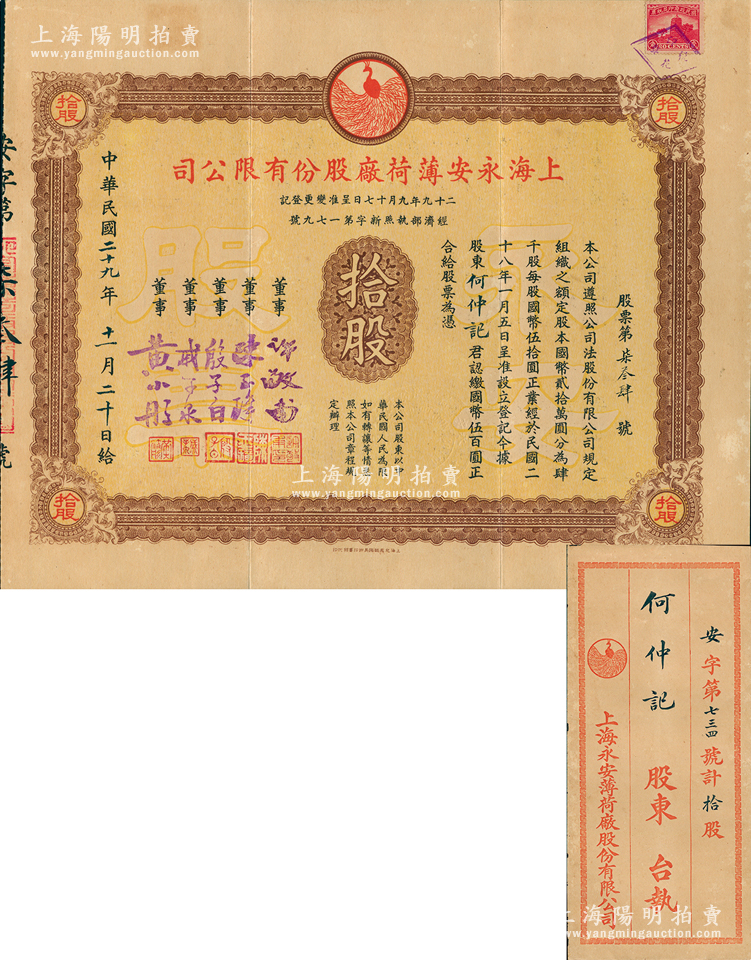 上海陽明拍賣
www.yangmingauction.com
上海陽明拍賣
www.yangmingauction.com
拾股
拾股
司公限有份股廠荷薄安永海上
記登更變准呈日七十月九年九十二
號九七一第字新照執部濟經
股票第柒叁肆號
本公司遵照公司法股份有限公司規定
組織之額定股本國幣貳拾萬圓分為肆
千股每股國幣伍拾圓正業經於民國二
十八年一月五日呈准設立登記今據
股東何仲記君認繳國幣伍百圓正
合給股票為憑
本公司股東以中
華民國人民為限
如有轉讓等情悉
照本公司章程規
定辦理
拾股
董事
董事
董事
董事
董事
黃小彤
中華民國二十九年十一月二十日給
安字第柒叁肆號
拾股
拾股
上海陽明拍賣
www.yangmingauction.com
安字第七三四號計拾股
何仲記股東台執
上海永安薄荷廠股份有限公司
上海陽明拍賣
www.yangmingauction.com
上海陽明拍賣
www.yangmingauction.com